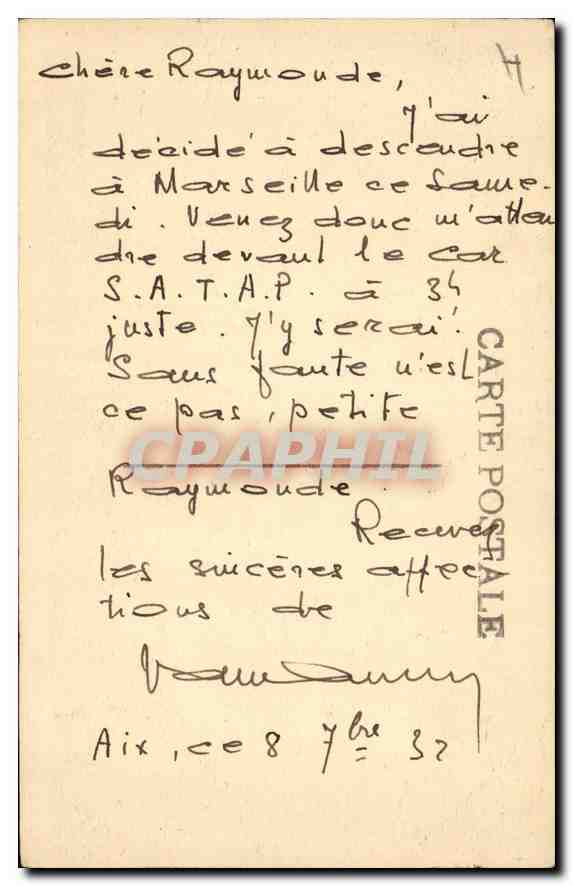 Chère Raymonde,
J'ai
décidé à descendre
à Marseille ce Same-
di. Venez donc m'atten
dre devant le car
S.A.T.A.P. à 3h
juste. J'y serai.
Sans faute n'est
ce pas, petite
CPAPHIL
Raymonde.
Recevez
les sincères affec
tions de
Aix, ce 8 7bre 32
CARTE POSTALE